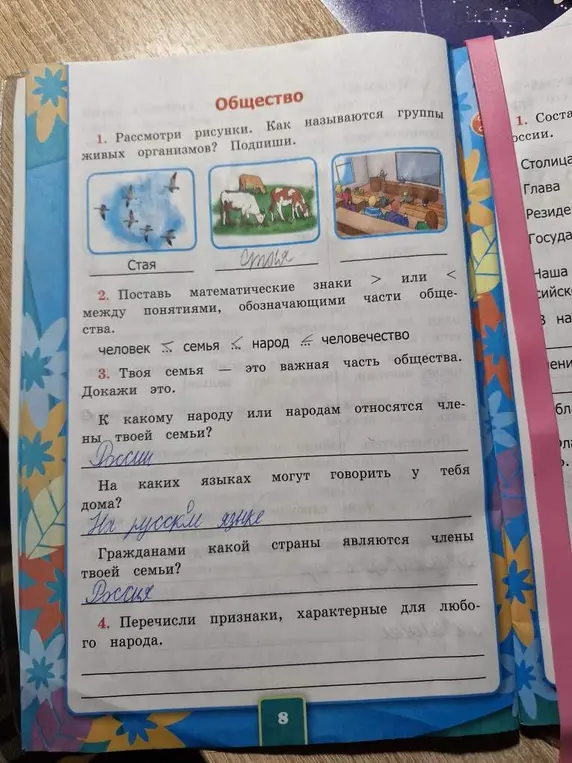 Общество
1. Рассмотри рисунки. Как называются группы
живых организмов? Подпиши.
Стая
2. Поставь математические знаки > или <
между понятиями, обозначающими части обще-
ства.
человек < семья < народ < человечество
3. Твоя семья — это важная часть общества.
Докажи это.
К какому народу или народам относятся чле-
ны твоей семьи?
России
На каких языках могут говорить у тебя
дома?
На русском языке
Гражданами какой страны являются члены
твоей семьи?
Россия
4. Перечисли признаки, характерные для любо-
го народа.
8
1. Соста
оссии.
Столица
Глава
Резиде
Госуда
Наша